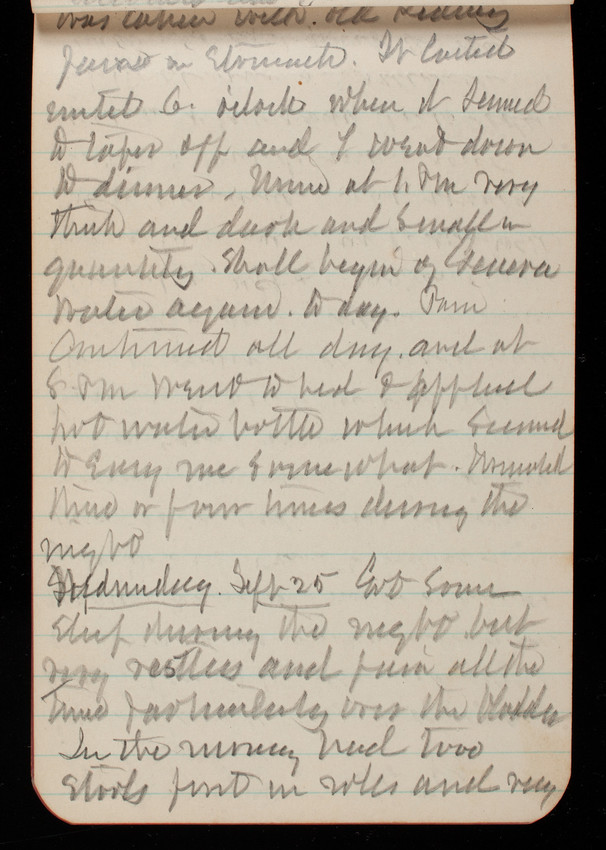 was taken with old Kidney
pains in Stomach. It lasted
until 6. oclock when it seemed
to taper off and I went down
to dinner. Urine at 1. Pm very
thick and dark and small in
quantity. Shall begin of Geneva
Water again. to day. Pain
Continued all day. and at
8 Pm went to bed & applied
hot water bottle which seemed
to Easy me somewhat. Vomited
three or four times during the
night
Wednesday. Sept 25 Got some
sleep during the night but
very restless and pain all the
time particularly over the bladder
In the morning had two
stools first in rolls and very